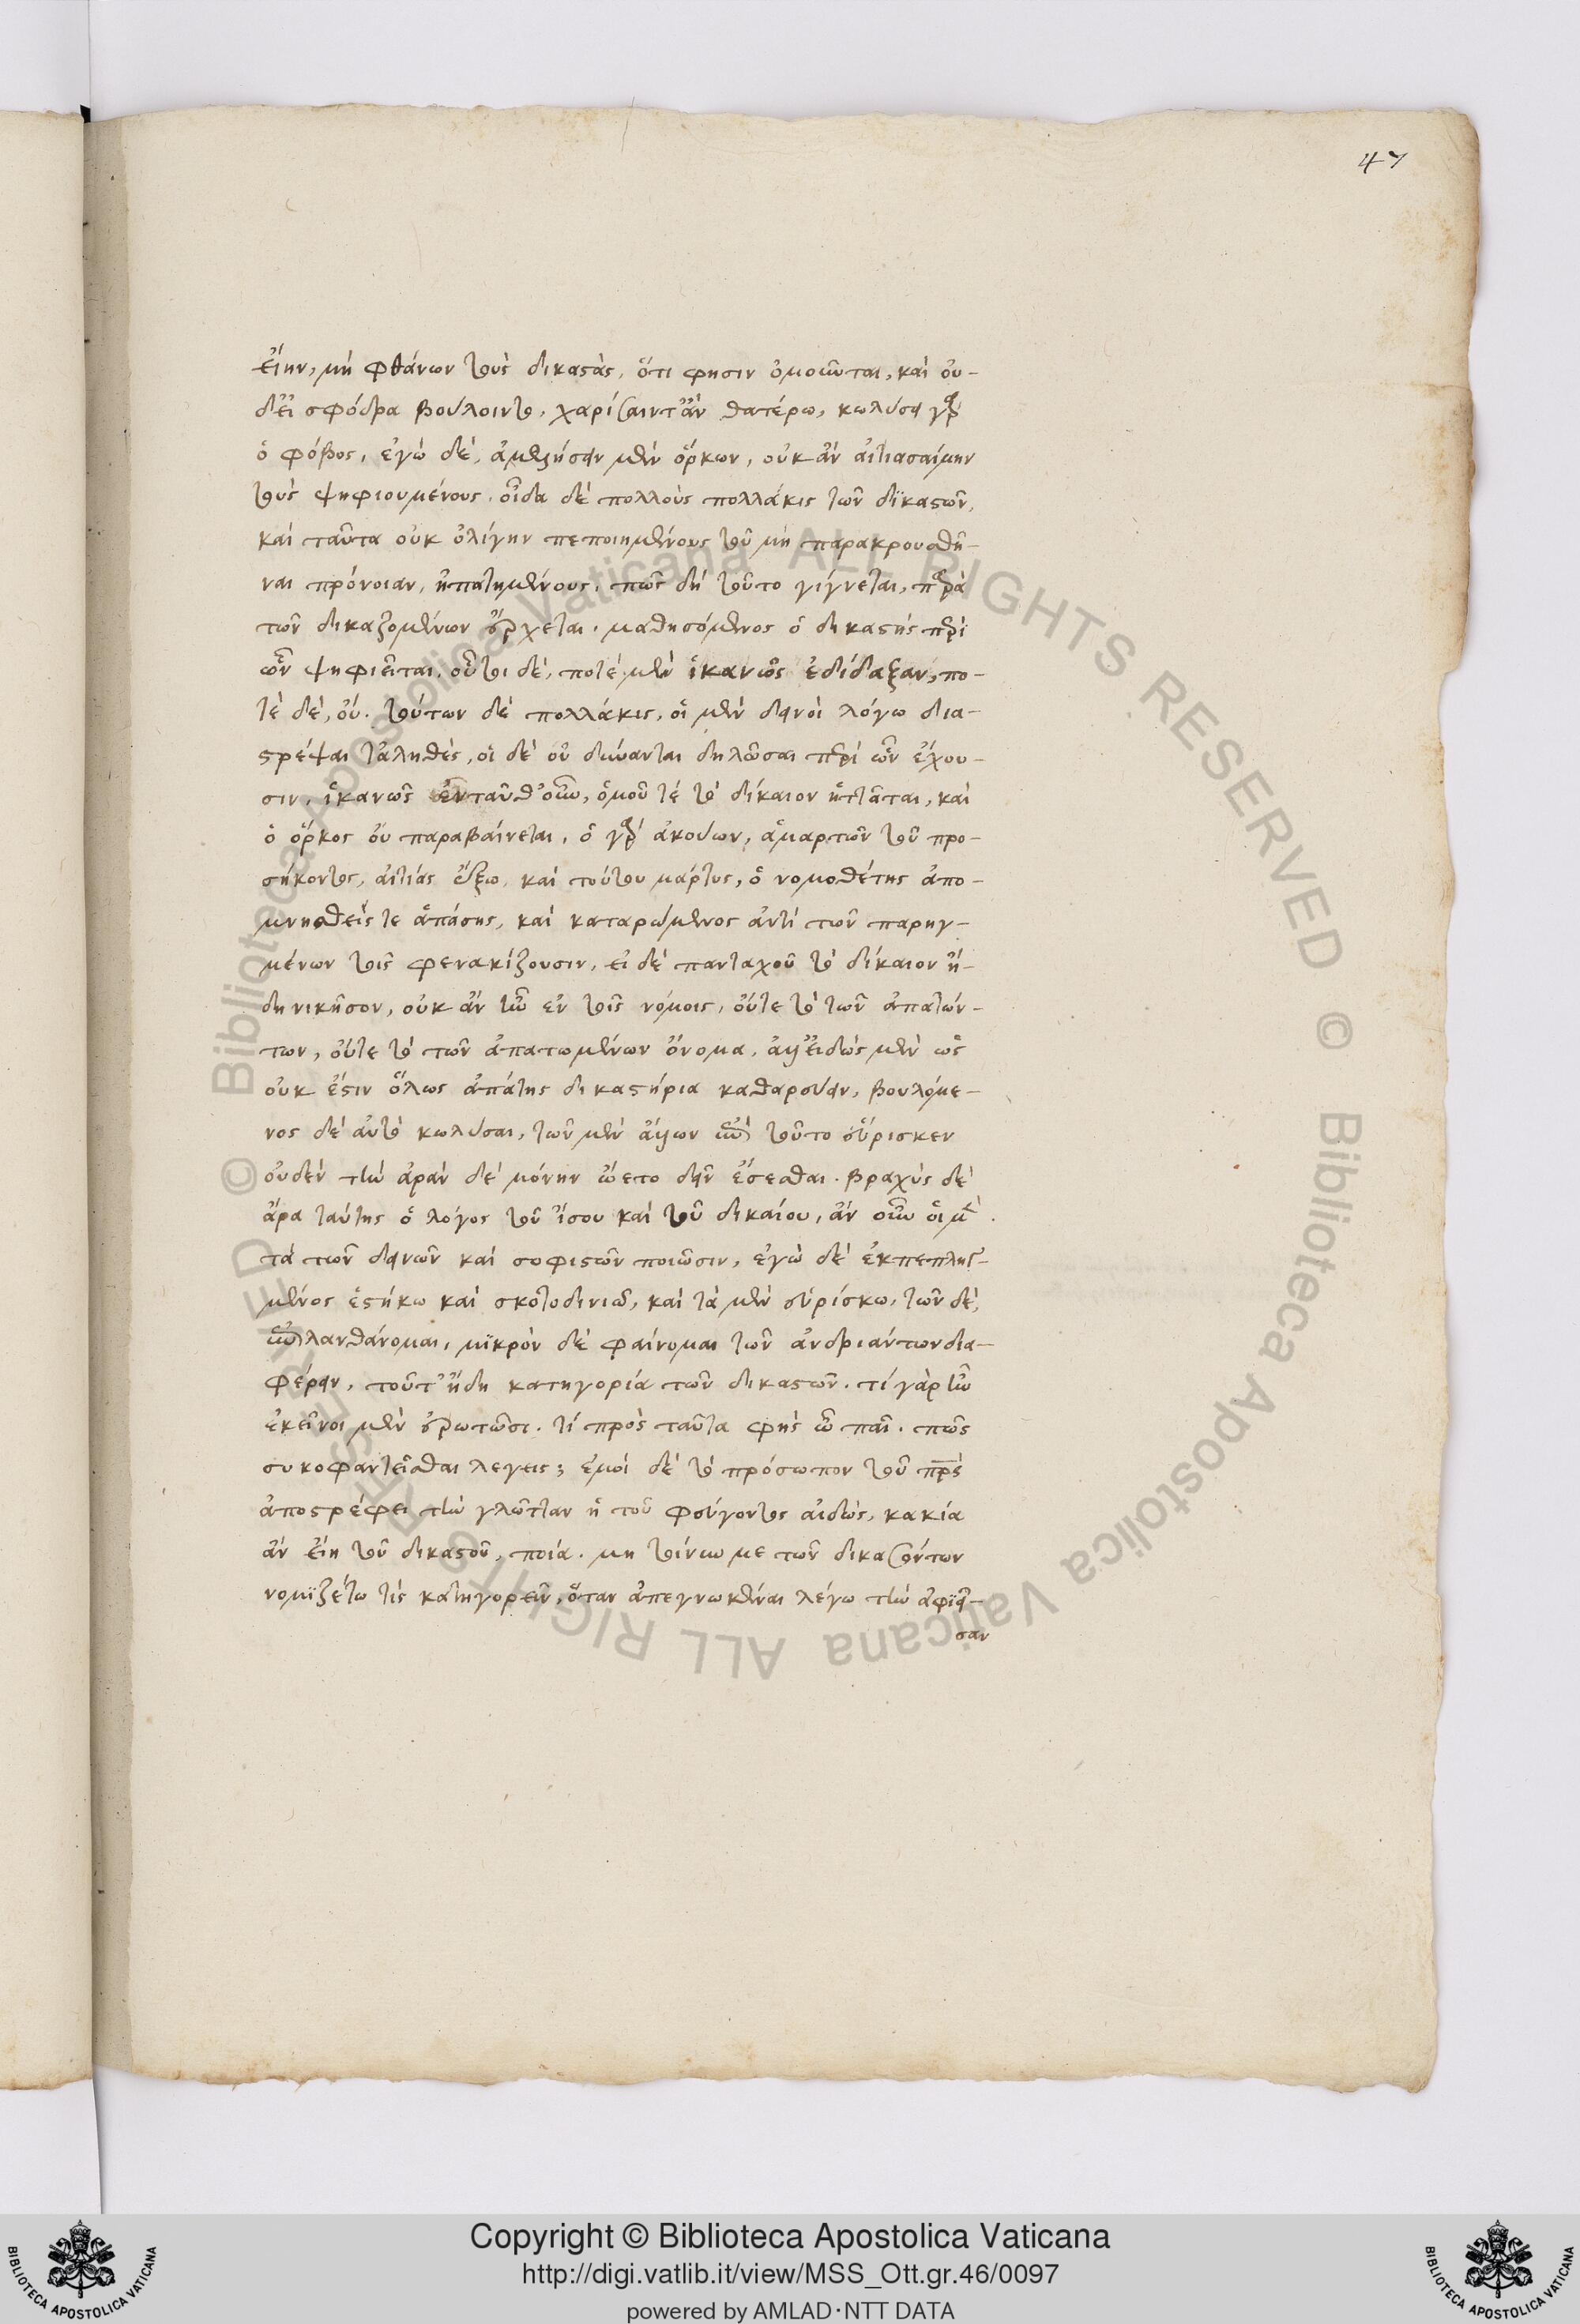 47
εἴην, μὴ φθάνων τοὺς δικαστὰς, ὅτι φησὶν ὀμοῦνται, καὶ οὐ-
δ' εἰ σφόδρα βούλοιντο, χαρίσαιντ' ἂν θατέρω, κωλύσει γὰρ
ὁ φόβος, ἐγὼ δὲ, ἀμελήσειν μὲν ὅρκων, οὐκ ἂν αἰτιασαίμην
τοὺς ψηφιουμένους. οἶδα δὲ πολλοὺς πολλάκις τῶν δϊκαστῶν,
καὶ ταῦτα οὐκ ὀλίγην πεποιημένους τοῦ μὴ παρακρουσθῆ-
ναι πρόνοιαν, ἠπατημένους, πῶς δὴ τοῦτο γίγνεται, παρὰ
τῶν δικαζομένων ἔρχεται. μαθησόμενος ὁ δικαστὴς περὶ
ὧν ψηφιεῖται, οὗτοι δὲ, ποτὲ μὲν ἱκανῶς ἐδίδαξαν, πο-
τὲ δὲ, οὔ. τούτων δὲ πολλάκις, οἱ μὲν δεινοὶ λόγω δια-
στρέψαι τἀληθὲς, οἱ δὲ οὐ δύνανται δηλῶσαι περὶ ὧν ἔχου-
σιν, ἱκανῶς ἐνταῦθ' οὖν, ὁμοῦ τὲ τὸ δίκαιον ἡττᾶται, καὶ
ὁ ὅρκος οὐ παραβαίνεται, ὁ γὰρ ἀκούων, ἁμαρτὼν τοῦ προ-
σήκοντος, αἰτίας ἔξω, καὶ τούτου μάρτυς, ὁ νομοθέτης ἀπο-
μνησθείς τε ἁπάσης, καὶ καταρώμενος ἀντὶ τῶν παρηγ-
μένων τοῖς φενακίζουσιν, εἰ δὲ πανταχοῦ τὸ δίκαιον ἤ-
δη νικῆσον, οὐκ ἂν ἦν ἐν τοῖς νόμοις, οὔτε τὸ τῶν ἀπατών-
των, οὔτε τὸ τῶν ἀπατωμένων ὄνομα, ἀλλ' εἰδὼς μὲν ὡς
οὐκ ἔστιν ὅλως ἀπάτης δικαστήρια καθαρεύειν, βουλόμε-
νος δὲ αὐτὸ κωλῦσαι, τῶν μὲν ἄλλων ὑπὲρ τοῦτο εὕρισκεν
οὐδὲν τὴν ἀρὰν δὲ μόνην ᾤετο δεῖν ἔσεσθαι. βραχὺς δὲ
ἄρα ταύτης ὁ λόγος τοῦ ἴσου καὶ τοῦ δικαίου, ἂν οὖν οἱ με
τὰ τῶν δεινῶν καὶ σοφιστῶν ποιῶσιν, ἐγὼ δὲ ἐκπεπληγ-
μένος ἑστήκω καὶ σκοτοδινιῶ, καὶ τὰ μὲν εὑρίσκω, τῶν δὲ,
ἐπιλανθάνομαι, μϊκρὸν δὲ φαίνομαι τῶν ἀνδριάντων δια-
φέρειν, τοῦτ' ἤδη κατηγορία τῶν δικαστῶν. τί γὰρ ἦν
ἐκεῖνοι μὲν ἐρωτῶσι. τί πρὸς ταῦτα φὴς ὦ παῖ. πῶς
συκοφαντεῖσθαι λεγεις; ἐμοὶ δὲ τὸ πρόσωπον τοῦ πρς
ἀποστρέφει τὴν γλῶτταν ἢ τοῦ φεύγοντος αἰδὼς, κακία
ἂν εἴη τοῦ δικαστοῦ, ποία. μὴ τοίνυν με τῶν δικασόντων
νομϊζέτω τὶς κατηγορεῖν, ὅταν ἀπεγνωκέναι λέγω τὴν ἀφϊεῖ-
σαν
Copyright © Biblioteca Apostolica Vaticana
http://digi.vatlib.it/view/MSS_Ott.gr.46/0097
powered by AMLAD·NTT DATA